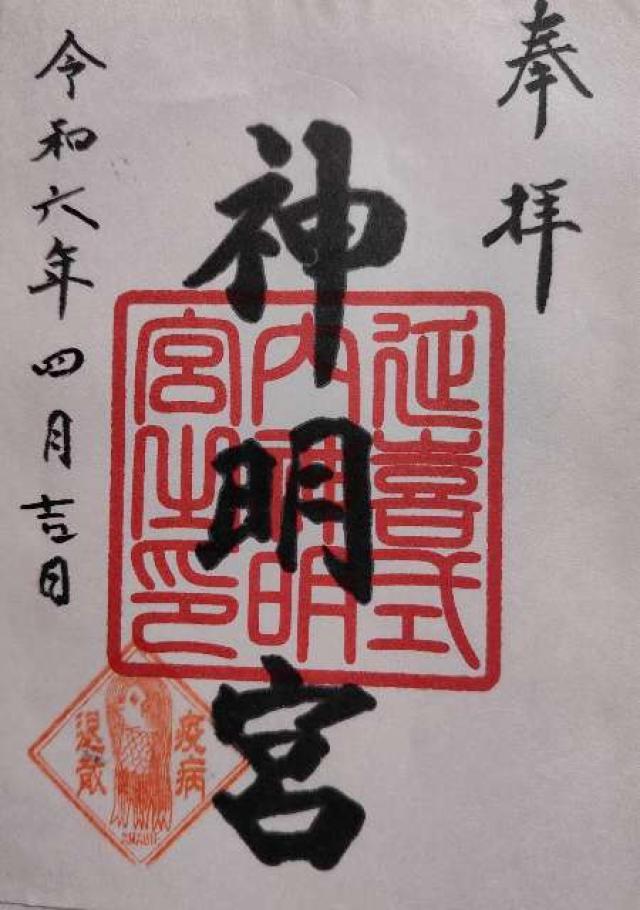 奉拝
神明宮
延喜式
内神明
宮之印
令和六年四月吉日
疫病
退散
AMABIE